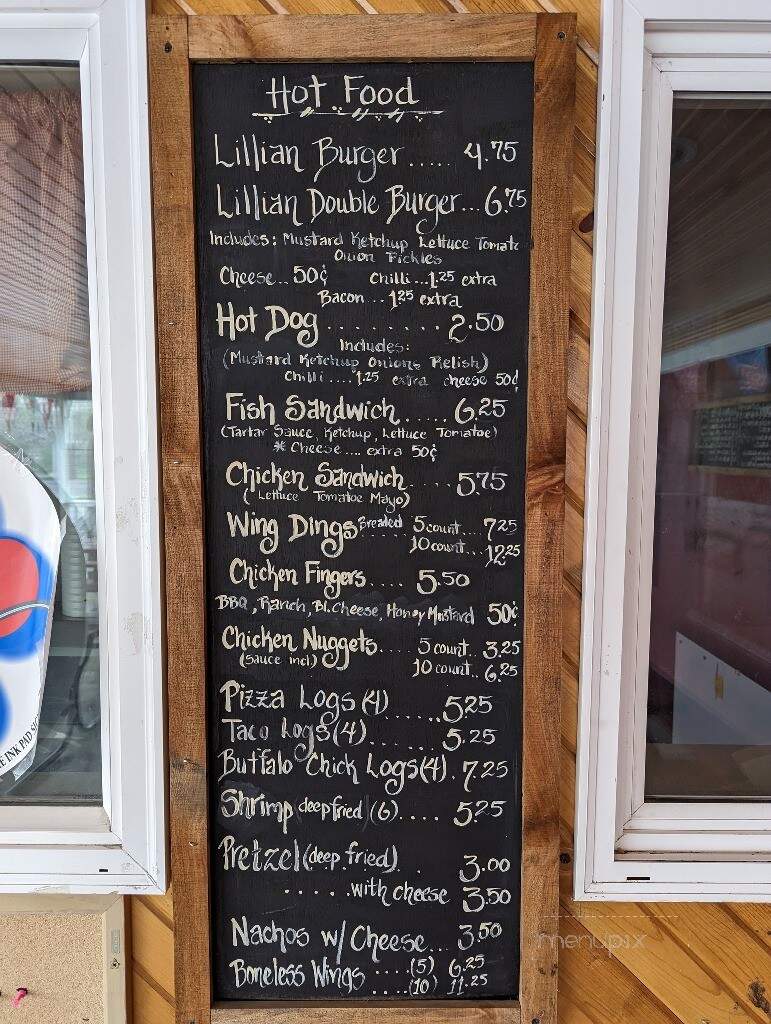 Hot Food
Lillian Burger...... 4.75
Lillian Double Burger... 6.75
Includes: Mustard Ketchup Lettuce Tomato
Onion Pickles
Cheese.. 50¢ Chilli...1.25 extra
Bacon... 1.25 extra
Hot Dog ........ 2.50
Includes:
(Mustard Ketchup Onions Relish)
Chilli ....1.25 extra cheese 50¢
Fish Sandwich..... 6.25
(Tartar Sauce, Ketchup, Lettuce Tomatoe)
* Cheese.... extra 50¢
Chicken Sandwich..... 5.75
(Lettuce Tomatoe Mayo)
Wing Dings Breaded 5 count.... 7.25
10 count... 12.25
Chicken Fingers.... 5.50
BBQ, Ranch, Bl. Cheese, Honey Mustard 50¢
Chicken Nuggets.... 5 count.. 3.25
(sauce incl) 10 count.. 6.25
Pizza Logs (4) ......5.25
Taco Logs (4)....... 5.25
Buffalo Chick Logs (4). 7.25
Shrimp (deep fried) (6).... 5.25
Pretzel (deep fried). . 3.00
.....with cheese 3.50
Nachos w/ Cheese... 3.50
Boneless Wings ....(5) 6.25
....(10) 11.25
INK PAD
menupix